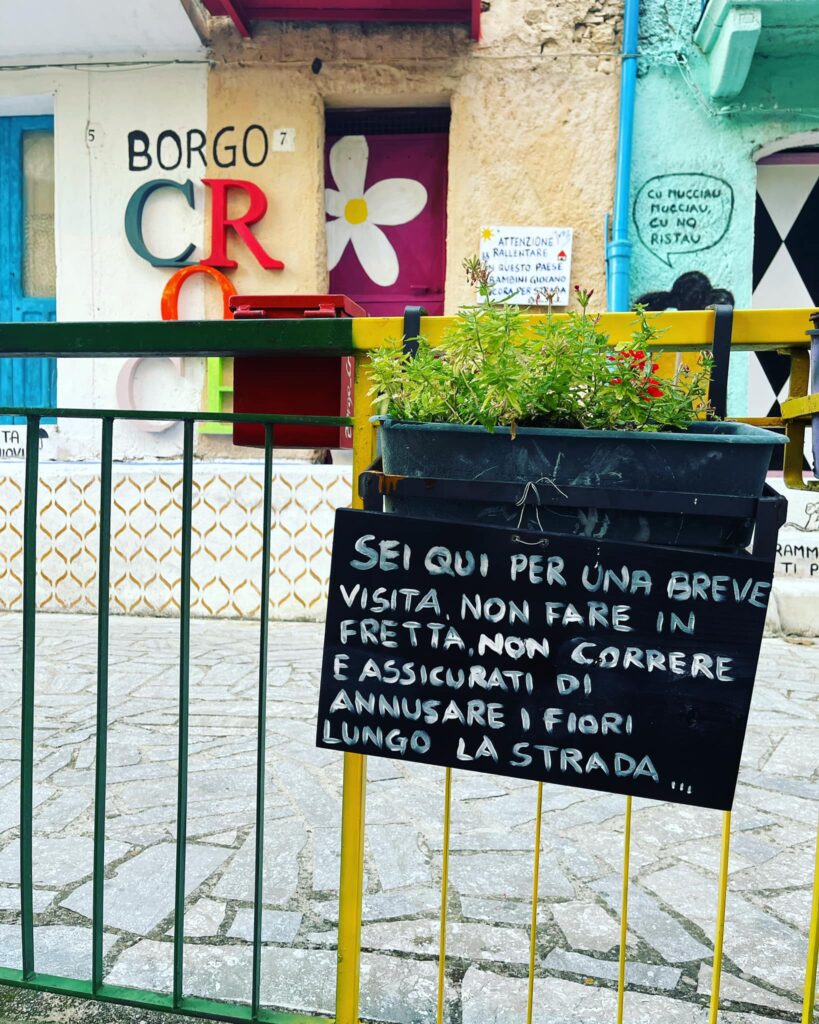 5
BORGO
7
CR
O
C E
ATTENZIONE
RALLENTARE
IN QUESTO PAESE
BAMBINI GIOCANO
ANCORA PER STRADA
CU MUCCIAU
MUCCIAU,
CU NO
RISTAU
TA
SEI QUI PER UNA BREVE
VISITA, NON FARE IN
FRETTA, NON CORRERE
E ASSICURATI DI
ANNUSARE I FIORI
LUNGO LA STRADA...
RAMM
TI P